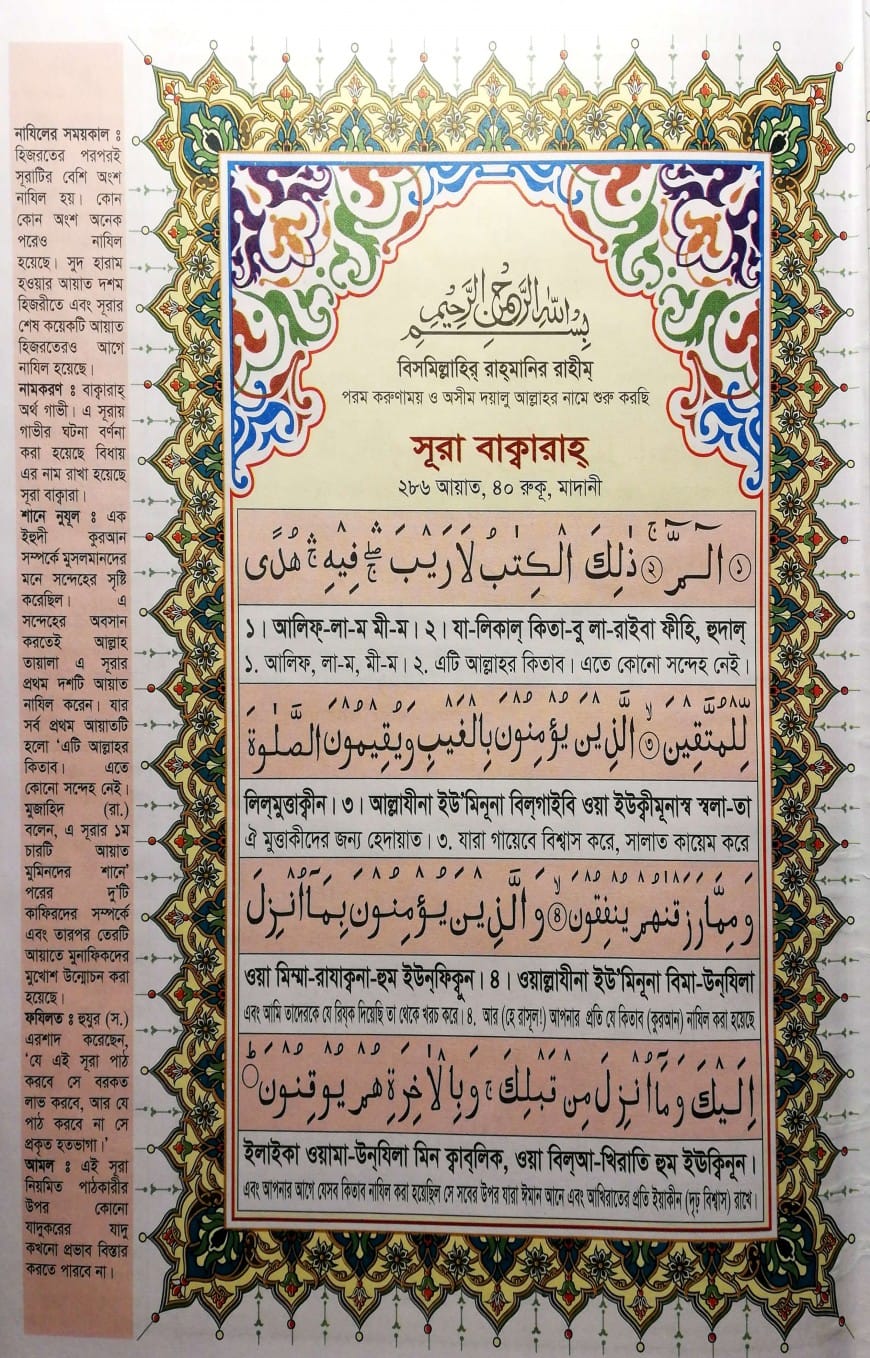 নাযিলের সময়কাল ঃ
হিজরতের পরপরই
সূরাটির বেশি অংশ
নাযিল হয়। কোন
কোন অংশ অনেক
পরেও নাযিল
হয়েছে। সুদ হারাম
হওয়ার আয়াত দশম
হিজরীতে এবং সূরার
শেষ কয়েকটি আয়াত
হিজরতেরও আগে
নাযিল হয়েছে।
নামকরণ ঃ বাক্বারাহ্
অর্থ গাভী। এ সূরায়
গাভীর ঘটনা বর্ণনা
করা হয়েছে বিধায়
এর নাম রাখা হয়েছে
সূরা বাক্বারা।
শানে নুযূল ঃ এক
ইহুদী কুরআন
সম্পর্কে মুসলমানদের
মনে সন্দেহের সৃষ্টি
করেছিল। এ
সন্দেহের অবসান
করতেই আল্লাহ
তায়ালা এ সূরার
প্রথম দশটি আয়াত
নাযিল করেন। যার
সর্ব প্রথম আয়াতটি
হলো ‘এটি আল্লাহর
কিতাব। এতে
কোনো সন্দেহ নেই।
মুজাহিদ (রা.)
বলেন, এ সূরার ১ম
চারটি আয়াত
মুমিনদের শানে’
পরের দু’টি
কাফিরদের সম্পর্কে
এবং তারপর তেরটি
আয়াতে মুনাফিকদের
মুখোশ উন্মোচন করা
হয়েছে।
ফযিলত ঃ হুযুর (স.)
এরশাদ করেছেন,
‘যে এই সূরা পাঠ
করবে সে বরকত
লাভ করবে, আর যে
পাঠ করবে না সে
প্রকৃত হতভাগা।’
আমল ঃ এই সূরা
নিয়মিত পাঠকারীর
উপর কোনো
যাদুকরের যাদু
কখনো প্রভাব বিস্তার
করতে পারবে না।
بِسْمِ اللهِ الرَّحْمٰنِ الرَّحِيْمِ
বিসমিল্লাহির্ রাহ্‌মানির রাহীম্
পরম করুণাময় ও অসীম দয়ালু আল্লাহর নামে শুরু করছি
সূরা বাক্বারাহ্
২৮৬ আয়াত, ৪০ রুকূ, মাদানী
الٓمّٓ ۚ ذٰلِكَ الْكِتٰبُ لَا رَيْبَ ۛۖ فِيْهِ ۛۚ هُدًى
১। আলিফ্-লা-ম মী-ম। ২। যা-লিকাল্ কিতা-বু লা-রাইবা ফীহি, হুদাল্
১. আলিফ, লা-ম, মী-ম। ২. এটি আল্লাহর কিতাব। এতে কোনো সন্দেহ নেই।
لِّلْمُتَّقِيْنَ ۙ﴿৩﴾ الَّذِيْنَ يُؤْمِنُوْنَ بِالْغَيْبِ وَيُقِيْمُوْنَ الصَّلٰوةَ
লিল্‌মুত্তাক্বীন। ৩। আল্লাযীনা ইউ’মিনূনা বিল্‌গাইবি ওয়া ইউক্বীমূনাস্ব স্বলা-তা
ঐ মুত্তাকীদের জন্য হেদায়াত। ৩. যারা গায়েবে বিশ্বাস করে, সালাত কায়েম করে
وَمِمَّا رَزَقْنٰهُمْ يُنْفِقُوْنَ ۙ﴿৪﴾ وَالَّذِيْنَ يُؤْمِنُوْنَ بِمَآ اُنْزِلَ
ওয়া মিম্মা-রাযাক্বনা-হুম ইউন্‌ফিক্বূন। ৪। ওয়াল্লাযীনা ইউ’মিনূনা বিমা-উন্‌যিলা
এবং আমি তাদেরকে যে রিযক দিয়েছি তা থেকে খরচ করে। ৪. আর (হে রাসূল!) আপনার প্রতি যে কিতাব (কুরআন) নাযিল করা হয়েছে
اِلَيْكَ وَمَآ اُنْزِلَ مِنْ قَبْلِكَ ۚ وَبِالْاٰخِرَةِ هُمْ يُوْقِنُوْنَ ؕ
ইলাইকা ওয়ামা-উন্‌যিলা মিন ক্বাব্‌লিক, ওয়া বিল্‌আ-খিরাতি হুম ইউক্বিনূন।
এবং আপনার আগে যেসব কিতাব নাযিল করা হয়েছিল সে সবের উপর যারা ঈমান আনে এবং আখিরাতের প্রতি ইয়াকীন (দৃঢ় বিশ্বাস) রাখে।